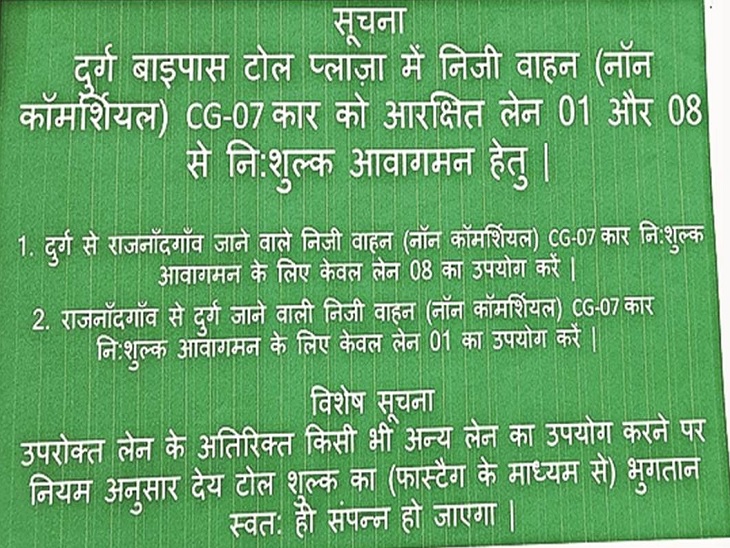 सूचना
दुर्ग बाइपास टोल प्लाज़ा में निजी वाहन (नॉन
कॉमर्शियल) CG-07 कार को आरक्षित लेन 01 और 08
से नि:शुल्क आवागमन हेतु |
1. दुर्ग से राजनाँदगाँव जाने वाले निजी वाहन (नॉन कॉमर्शियल) CG-07 कार नि:शुल्क
आवागमन के लिए केवल लेन 08 का उपयोग करें |
2. राजनाँदगाँव से दुर्ग जाने वाली निजी वाहन (नॉन कॉमर्शियल) CG-07 कार
नि:शुल्क आवागमन के लिए केवल लेन 01 का उपयोग करें |
विशेष सूचना
उपरोक्त लेन के अतिरिक्त किसी भी अन्य लेन का उपयोग करने पर
नियम अनुसार देय टोल शुल्क का (फास्टैग के माध्यम से) भुगतान
स्वत: ही संपन्न हो जाएगा |